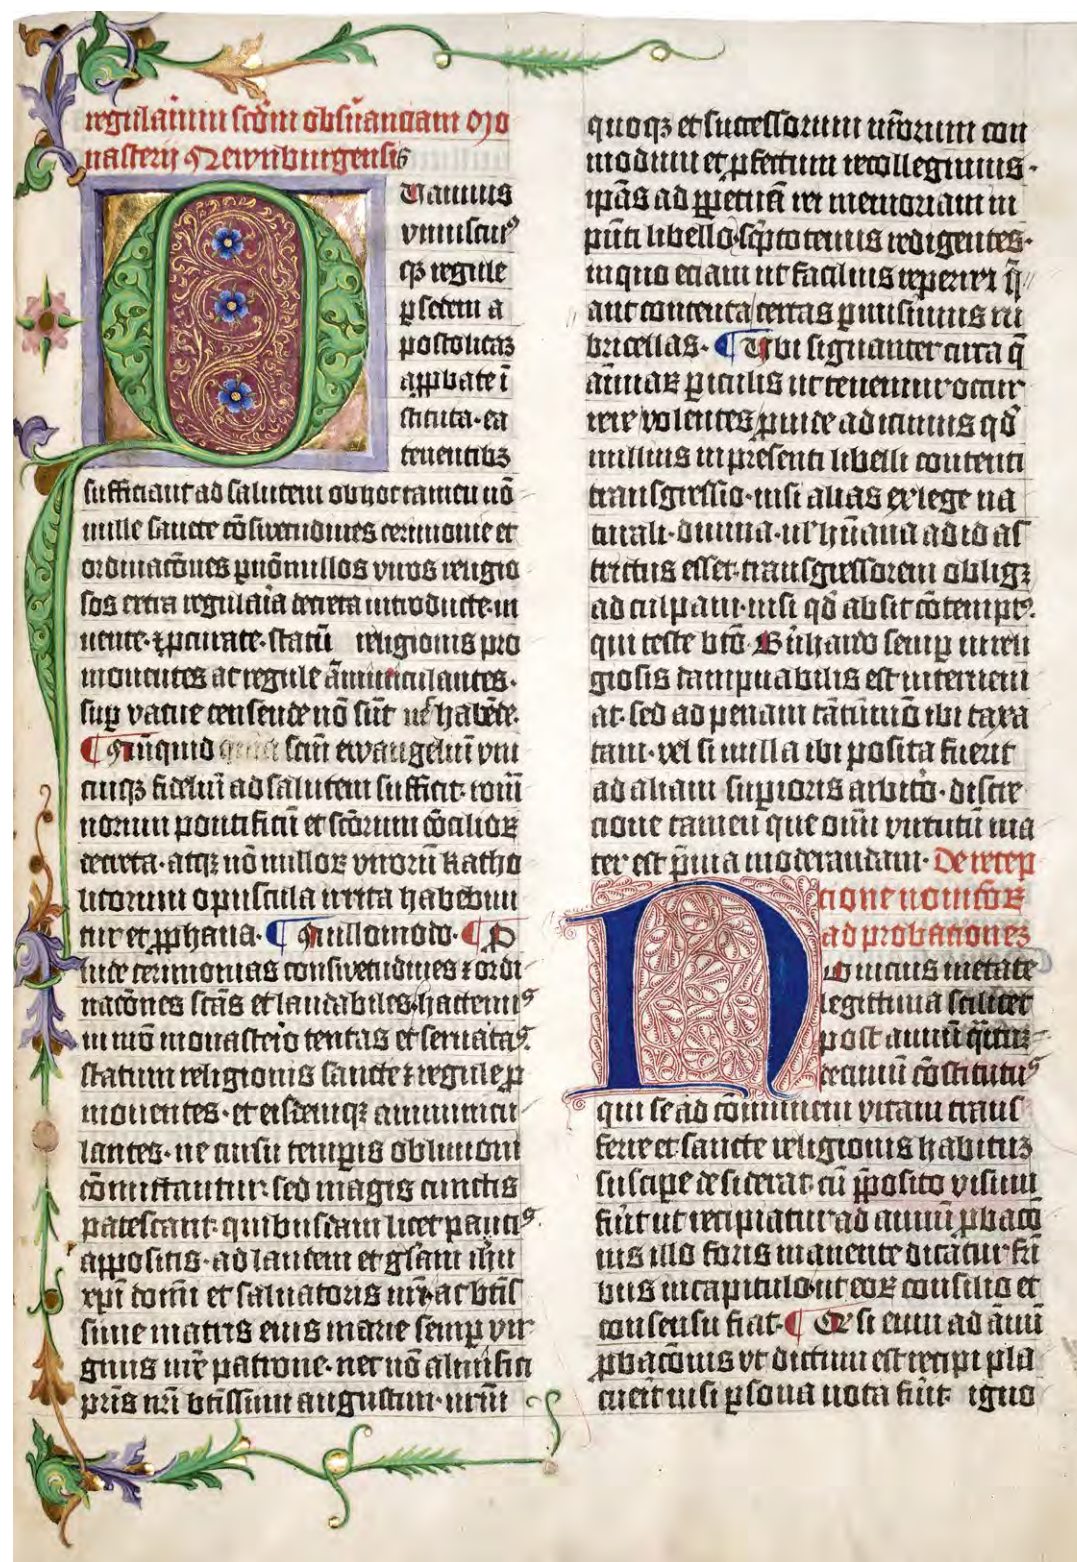 regulariū scd̄m obs̄uanciam Mo
nasterij Newnburgensis
Quamuis
vniuscuiꝰ
qꝫ regule
ꝑ sedem a
postolicaꝫ
apꝓbate ī
stituta ea
tenentibꝫ
sufficiant ad salutem obnoꝛ tamen nō
nulle sancte cōswetudines cerimonie et
ordinacōnes ꝑ nōnullos viros religio
sos citra regularia decreta introducte in
uente ⁊ ꝓcurate statū religionis pro
mouentes ac regule ām̄iniculantes.
suꝑ vacue censende nō sūt nec̄ habēde.
¶ Nūquid quia scm̄ ewangeliū vni
cuiqꝫ fideliū ad salutem sufficit romā
norum pontificū et scōrum cōcilioꝝ
decreta. atqꝫ nō nulloꝝ viroꝝ katho
licorum opuscula irrita habebun
tur et ꝓphana. ¶ Nullomodo. ¶ P
inde cerimonias conswetudines ⁊ ordi
nacōnes scās et laudabiles hactenꝰ
in nrō monasterio tentas et seruatas.
statum religionis sancte ⁊ regule ꝓ
mouentes. et eisdemqꝫ amminicu
lantes. ne cursu temꝑis obliuioni
cōmittantur sed magis cunctis
patescant. quibusdam licet paucis
appositis. ad laudem et glāam ihū
xpī domī et saluatoris nrī. ac btīs
sime matris eius marie semꝑ vir
ginis nrē patrone. nec nō almifici
pr̄is nr̄i btīssimi augustini. nr̄ūm
quoqꝫ et successorum nr̄orum com
modum et ꝓfectum recollegimus.
ip̄as ad ꝑpetuā rei memoriam in
pn̄ti libello scͥpto tenus redigentes.
in quo eciam ut facilius reꝑerirētur q̄//
// ant contenta certas p̄misimus ru
bricellas. ¶ Vbi signanter circa q̄
aīmaꝝ ꝑiculis ut tenemur occur
rere volentes ꝓuide adicimus qd̄
nullius in presenti libelli contenti
transgressio. nisi alias ex lege na
turali. diuina. ul' hūana ad id as
trictus esset. transgressorem obligꝫ
ad culpam. nisi qd̄ absit cōtemptꝰ.
qui teste btō. Bn̄hardo semꝑ in reli
giosis dampnabilis est interueni
at. sed ad penam tātūmō ibi taxa
tam. vel si nulla ibi posita fuerit
ad aliam suꝑioris arbitrio. discre
cione tamen que oīm virtutū ma
ter est p̄uia moderandam. De recep
cione nouisoꝝ
ad probationeꝫ
Nouicius in etate
legittima scilicet
post annū q̄rtū
decimū cōstitutꝰ
qui se ad cōmunem vitam trans
ferre et sancte religionis habituꝫ
suscipe desiderat. cū p̄posito visum
fūit ut recipiatur ad annū ꝓbacō
nis illo foris manente dicātur frī
bus in capitulo. ut eoꝝ consilio et
consensu fiat. ¶ Et si eum ad annū
ꝓbacōnis vt dictum est recipi pla
cuerit nisi ꝑsona nota fūit. igno